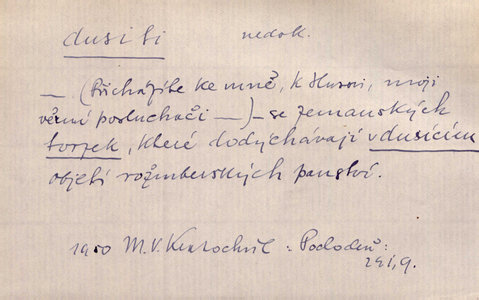 dusiti nedok.
— (Přicházíte ke mně, k Husovi, moji
věrní posluchači —) — se zemanských
tvrzek, které dodýchávají v dusícím
objetí rožmberských panství.
1950 M.V. Kratochvíl: Pochodeň:
291, 9.